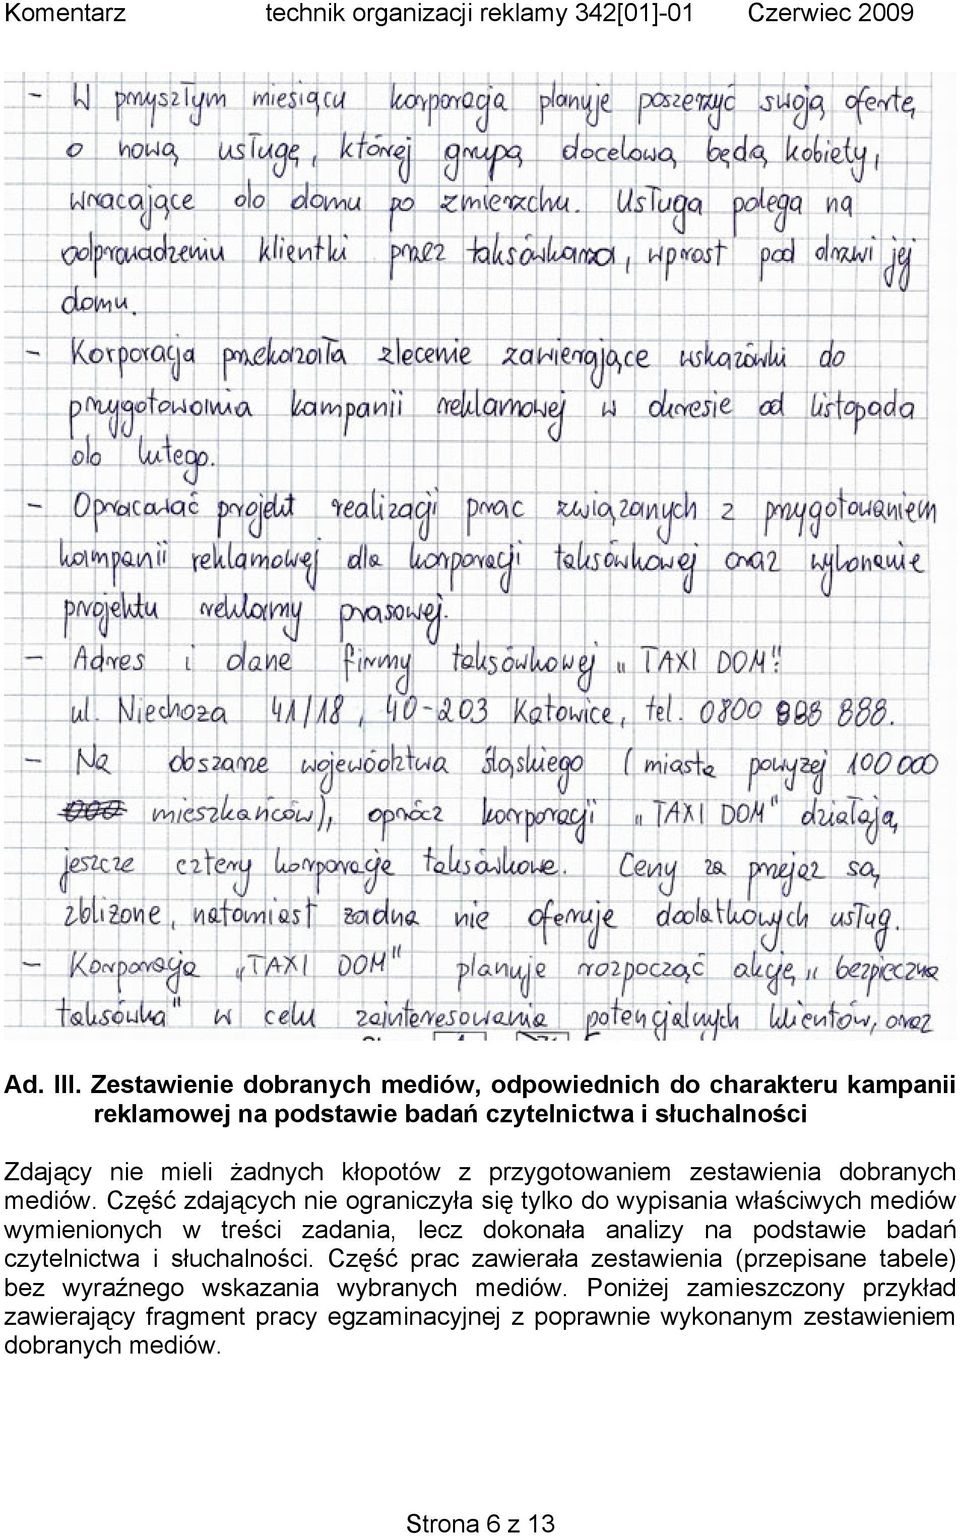 Komentarz technik organizacji reklamy 342[01]-01 Czerwiec 2009
- W przyszłym miesiącu korporacja planuje poszerzyć swoją ofertę
o nową usługę, której grupą docelową będą kobiety,
wracające do domu po zmierzchu. Usługa polega na
odprowadzeniu klientki przez taksówkarza, wprost pod drzwi jej
domu.
- Korporacja przekazała zlecenie zawierające wskazówki do
przygotowania kampanii reklamowej w okresie od listopada
do lutego.
- Opracować projekt realizacji prac związanych z przygotowaniem
kampanii reklamowej dla korporacji taksówkowej oraz wykonanie
projektu reklamy prasowej.
- Adres i dane firmy taksówkowej „TAXI DOM":
ul. Niechoża 41/18, 40-203 Katowice, tel. 0800 888 888.
- Na obszarze województwa śląskiego (miasta powyżej 100 000
mieszkańców), oprócz korporacji „TAXI DOM" działają
jeszcze cztery korporacje taksówkowe. Ceny za przejaz są
zbliżone, natomiast żadna nie oferuje dodatkowych usług.
- Korporacja „TAXI DOM" planuje rozpocząć akcję „bezpieczna
taksówka" w celu zainteresowania potencjalnych klientów, oraz
Ad. III. Zestawienie dobranych mediów, odpowiednich do charakteru kampanii
reklamowej na podstawie badań czytelnictwa i słuchalności
Zdający nie mieli żadnych kłopotów z przygotowaniem zestawienia dobranych
mediów. Część zdających nie ograniczyła się tylko do wypisania właściwych mediów
wymienionych w treści zadania, lecz dokonała analizy na podstawie badań
czytelnictwa i słuchalności. Część prac zawierała zestawienia (przepisane tabele)
bez wyraźnego wskazania wybranych mediów. Poniżej zamieszczony przykład
zawierający fragment pracy egzaminacyjnej z poprawnie wykonanym zestawieniem
dobranych mediów.
Strona 6 z 13